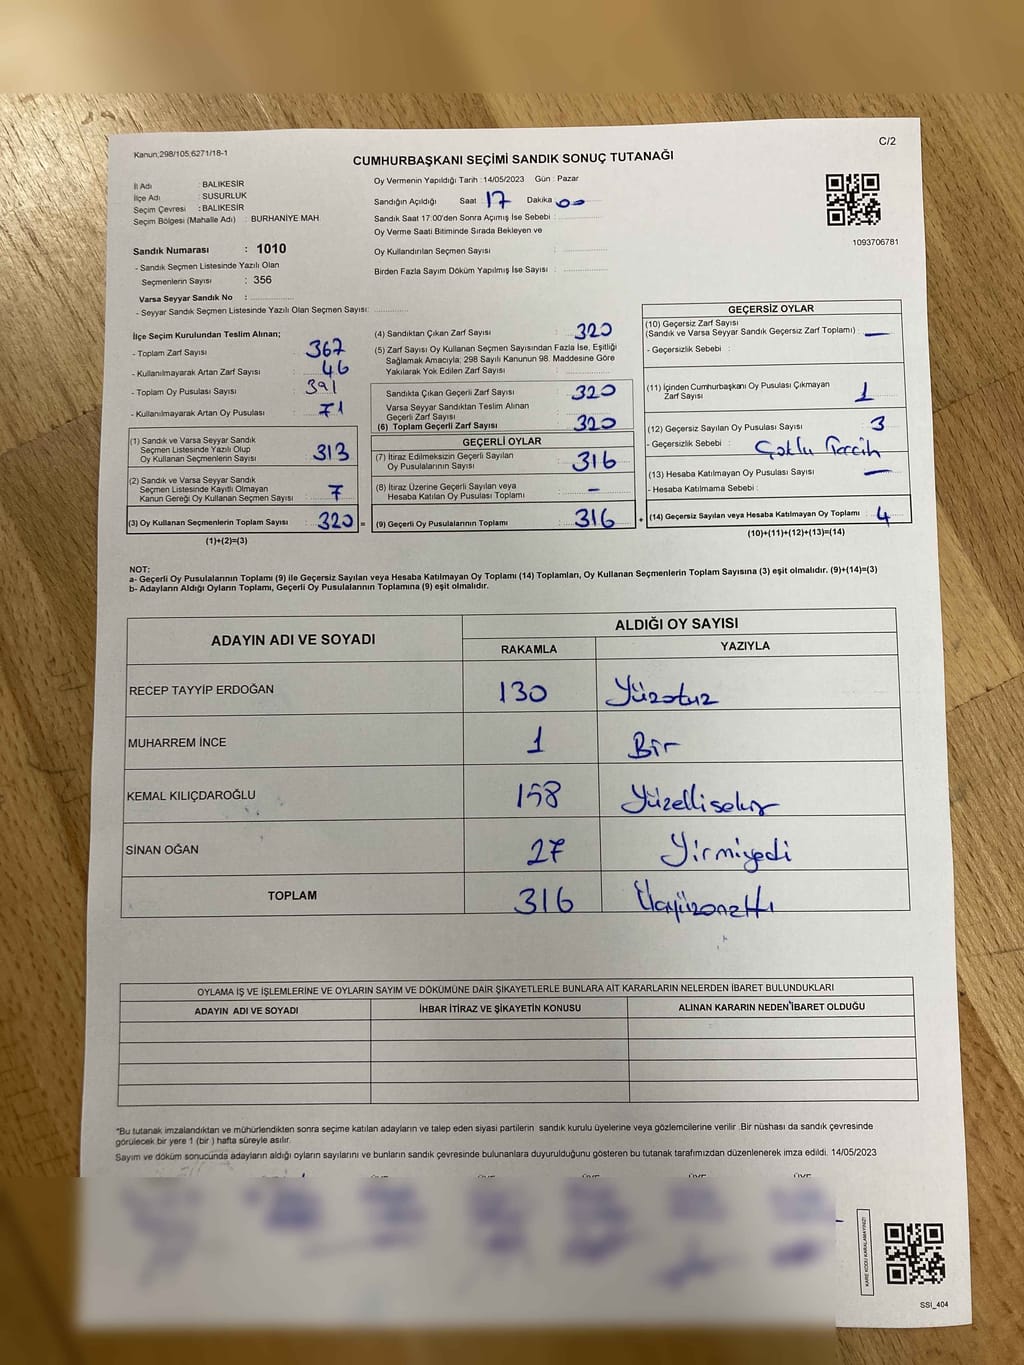 Kanun,298/105,6271/18-1
C/2
CUMHURBAŞKANI SEÇİMİ SANDIK SONUÇ TUTANAĞI
İl Adı : BALIKESİR
İlçe Adı : SUSURLUK
Seçim Çevresi : BALIKESİR
Seçim Bölgesi (Mahalle Adı) : BURHANİYE MAH
Oy Vermenin Yapıldığı Tarih :14/05/2023 Gün : Pazar
Sandığın Açıldığı Saat 17 Dakika 00
Sandık Saat 17:00'den Sonra Açımış İse Sebebi :
Oy Verme Saati Bitiminde Sırada Bekleyen ve
Oy Kullandırılan Seçmen Sayısı :
Birden Fazla Sayım Döküm Yapılmış İse Sayısı :
1093706781
Sandık Numarası : 1010
- Sandık Seçmen Listesinde Yazılı Olan
Seçmenlerin Sayısı : 356
Varsa Seyyar Sandık No :
- Seyyar Sandık Seçmen Listesinde Yazılı Olan Seçmen Sayısı:
İlçe Seçim Kurulundan Teslim Alınan;
- Toplam Zarf Sayısı : 367
- Kullanılmayarak Artan Zarf Sayısı : 46
- Toplam Oy Pusulası Sayısı : 391
- Kullanılmayarak Artan Oy Pusulası : 71
(1) Sandık ve Varsa Seyyar Sandık
Seçmen Listesinde Yazılı Olup
Oy Kullanan Seçmenlerin Sayısı : 313
(2) Sandık ve Varsa Seyyar Sandık
Seçmen Listesinde Kayıtlı Olmayan
Kanun Gereği Oy Kullanan Seçmen Sayısı : 7
(3) Oy Kullanan Seçmenlerin Toplam Sayısı : 320 =
(1)+(2)=(3)
(4) Sandıktan Çıkan Zarf Sayısı : 320
(5) Zarf Sayısı Oy Kullanan Seçmen Sayısından Fazla İse, Eşitliği
Sağlamak Amacıyla; 298 Sayılı Kanunun 98. Maddesine Göre
Yakılarak Yok Edilen Zarf Sayısı :
Sandıkta Çıkan Geçerli Zarf Sayısı : 320
Varsa Seyyar Sandıktan Teslim Alınan
Geçerli Zarf Sayısı :
(6) Toplam Geçerli Zarf Sayısı : 320
GEÇERLİ OYLAR
(7) İtiraz Edilmeksizin Geçerli Sayılan
Oy Pusulalarının Sayısı : 316
(8) İtiraz Üzerine Geçerli Sayılan veya
Hesaba Katılan Oy Pusulası Toplamı : –
(9) Geçerli Oy Pusulalarının Toplamı : 316 +
GEÇERSİZ OYLAR
(10) Geçersiz Zarf Sayısı
(Sandık ve Varsa Seyyar Sandık Geçersiz Zarf Toplamı) : —
- Geçersizlik Sebebi :
(11) İçinden Cumhurbaşkanı Oy Pusulası Çıkmayan
Zarf Sayısı : 1
(12) Geçersiz Sayılan Oy Pusulası Sayısı : 3
- Geçersizlik Sebebi : Çoklu Tercih
(13) Hesaba Katılmayan Oy Pusulası Sayısı : —
- Hesaba Katılmama Sebebi :
(14) Geçersiz Sayılan veya Hesaba Katılmayan Oy Toplamı : 4
(10)+(11)+(12)+(13)=(14)
NOT:
a- Geçerli Oy Pusulalarının Toplamı (9) ile Geçersiz Sayılan veya Hesaba Katılmayan Oy Toplamı (14) Toplamları, Oy Kullanan Seçmenlerin Toplam Sayısına (3) eşit olmalıdır. (9)+(14)=(3)
b- Adayların Aldığı Oyların Toplamı, Geçerli Oy Pusulalarının Toplamına (9) eşit olmalıdır.
ADAYIN ADI VE SOYADI
ALDIĞI OY SAYISI
RAKAMLA YAZIYLA
RECEP TAYYİP ERDOĞAN 130 Yüzotuz
MUHARREM İNCE 1 Bir
KEMAL KILIÇDAROĞLU 158 Yüzellisekiz
SİNAN OĞAN 27 Yirmiyedi
TOPLAM 316 Üçyüzonaltı
OYLAMA İŞ VE İŞLEMLERİNE VE OYLARIN SAYIM VE DÖKÜMÜNE DAİR ŞİKAYETLERLE BUNLARA AİT KARARLARIN NELERDEN İBARET BULUNDUKLARI
ADAYIN ADI VE SOYADI İHBAR İTİRAZ VE ŞİKAYETİN KONUSU ALINAN KARARIN NEDEN İBARET OLDUĞU
*Bu tutanak imzalandıktan ve mühürlendikten sonra seçime katılan adayların ve talep eden siyasi partilerin sandık kurulu üyelerine veya gözlemcilerine verilir .Bir nüshası da sandık çevresinde
görülecek bir yere 1 (bir ) hafta süreyle asılır.
Sayım ve döküm sonucunda adayların aldığı oyların sayılarını ve bunların sandık çevresinde bulunanlara duyurulduğunu gösteren bu tutanak tarafımızdan düzenlenerek imza edildi. 14/05/2023
KARE KODU KARALAMAYINIZ!
SSI_404